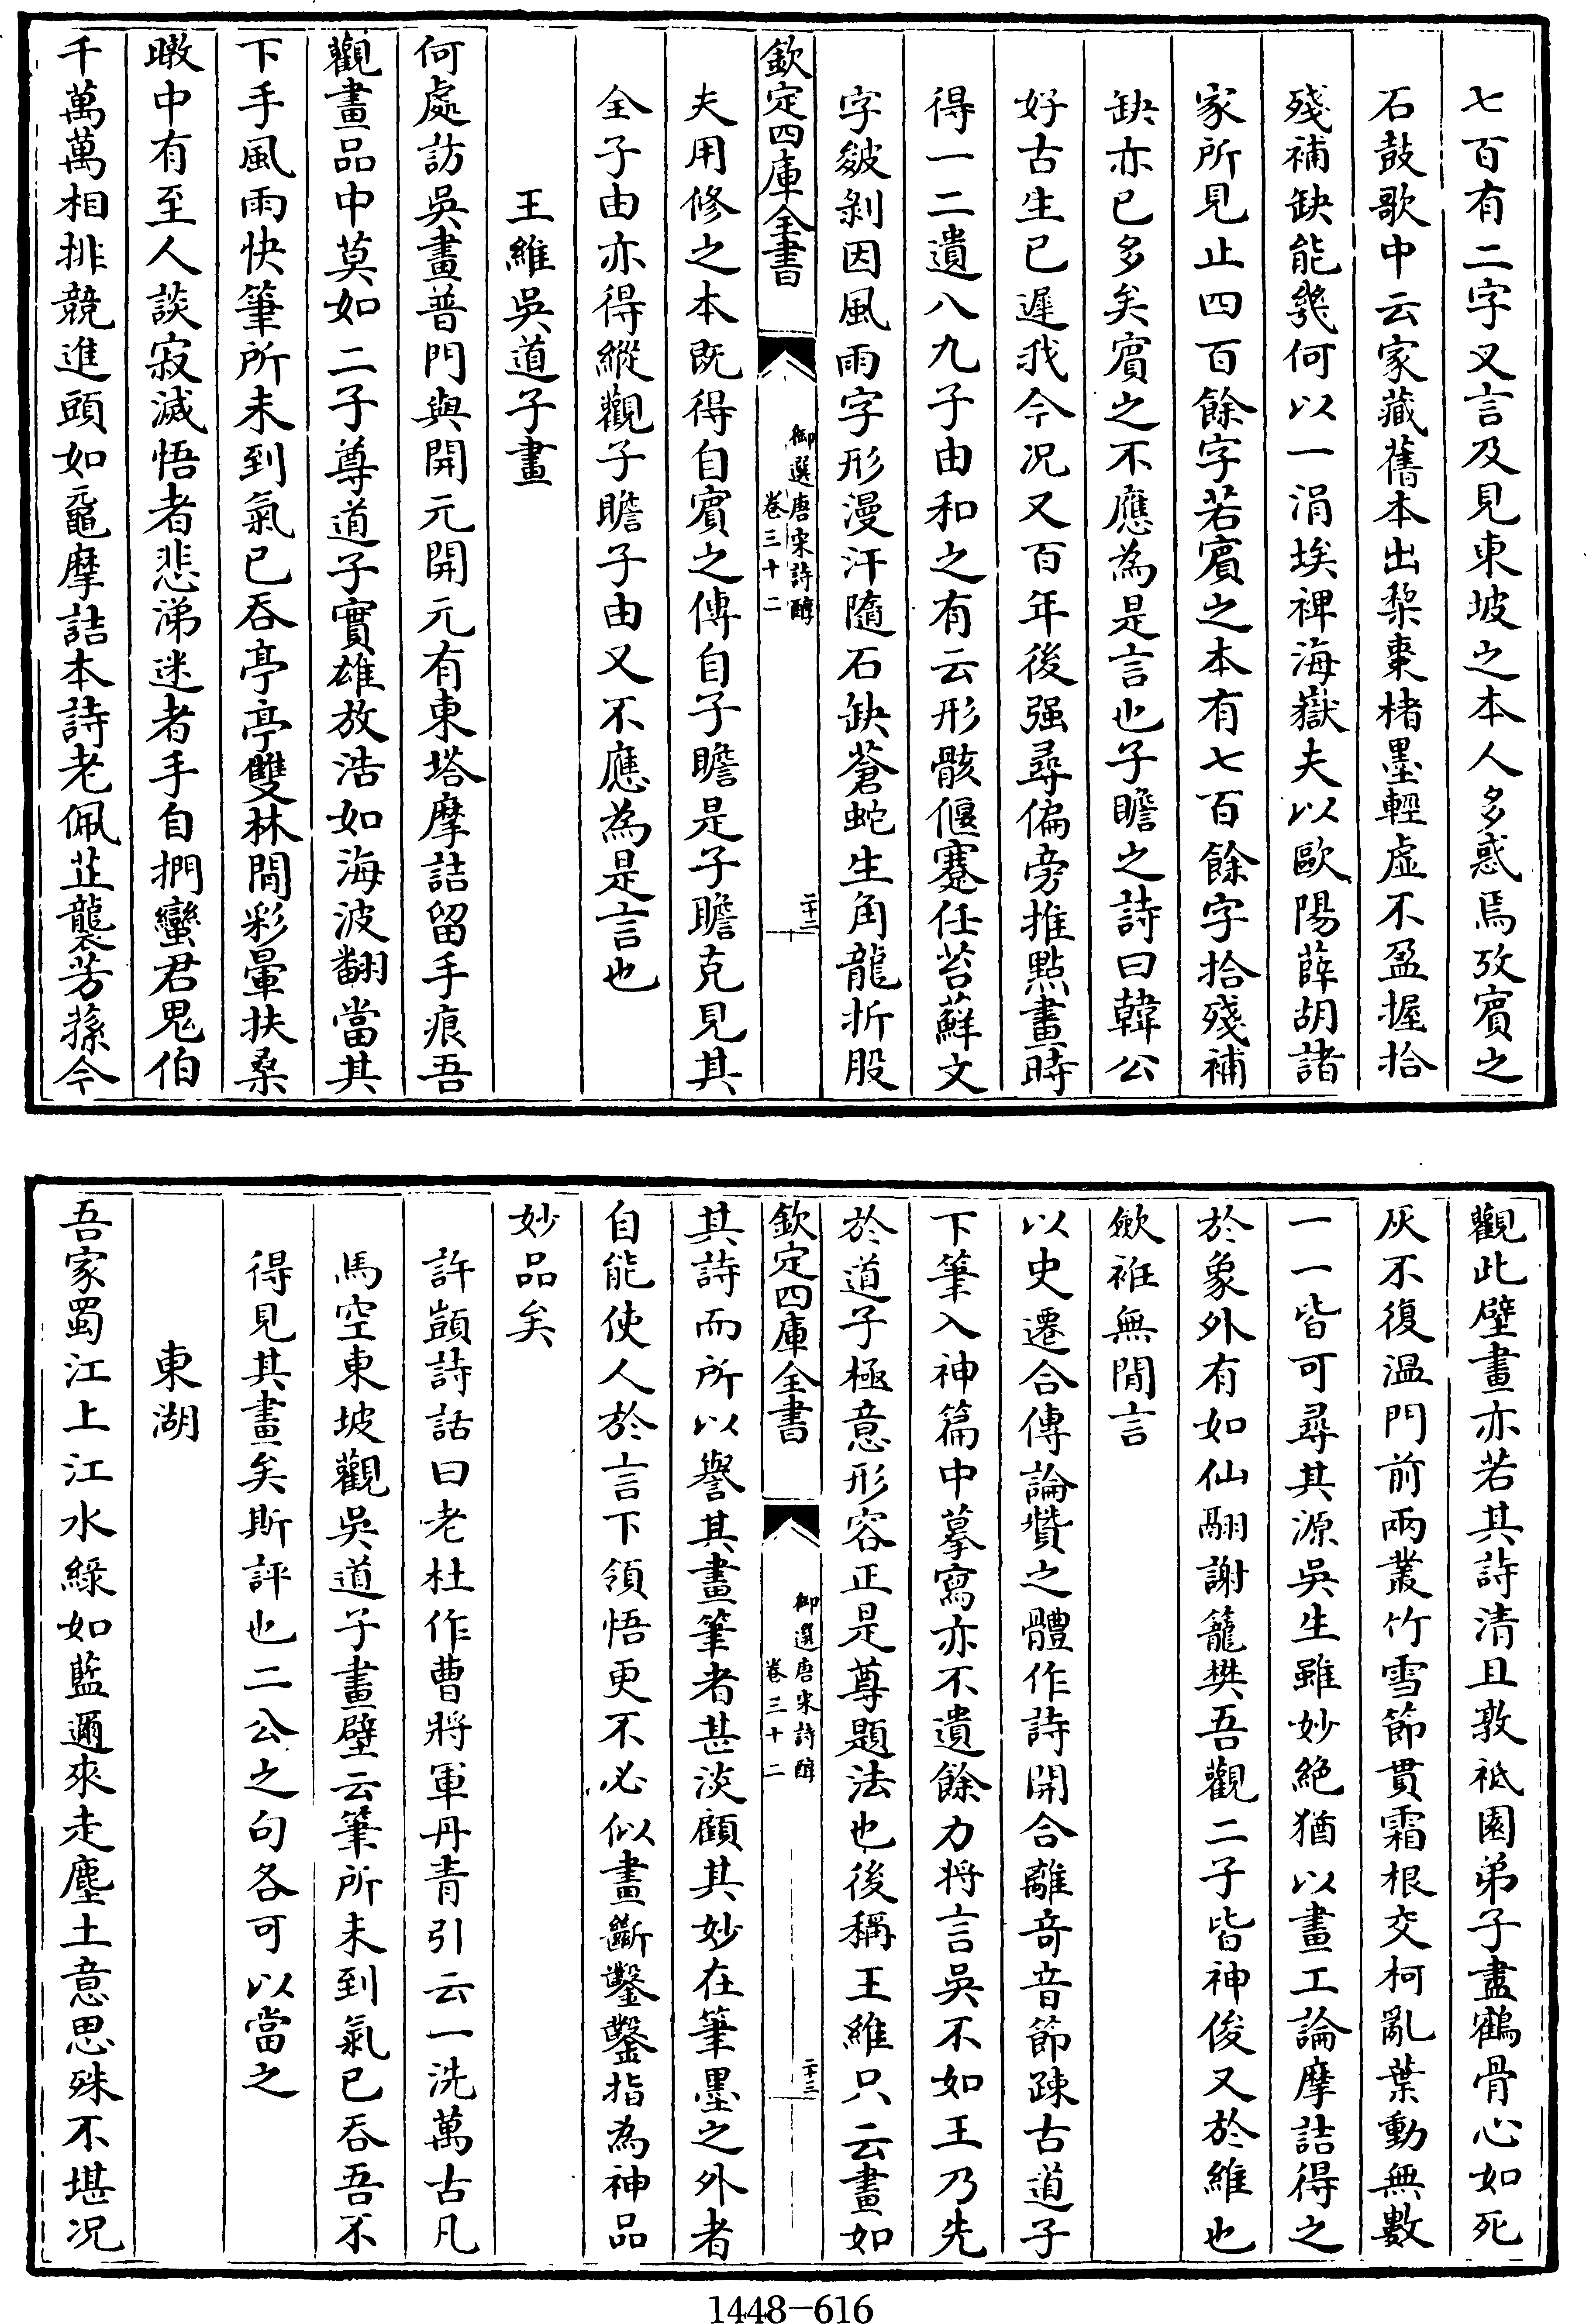 七百有二字又言及見東坡之本人多惑焉攷賓之
石鼓歌中云家藏舊本出棃棗楮墨輕虛不盈握拾
殘補缺能幾何以一涓埃裨海嶽夫以歐陽薛胡諸
家所見止四百餘字若賓之本有七百餘字拾殘補
缺亦已多矣賓之不應為是言也子瞻之詩曰韓公
好古生已遲我今况又百年後强尋偏旁推點畫時
得一二遺八九子由和之有云形骸偃蹇任苔蘚文
字皴剝因風雨字形漫汗隨石缺蒼蛇生角龍折股
欽定四庫全書
御選唐宋詩醇
卷三十二
二十二
夫用修之本既得自賓之傳自子瞻是子瞻克見其
全子由亦得縱觀子瞻子由又不應為是言也
王維吳道子畫
何處訪吳畫普門與開元開元有東塔摩詰留手痕吾
觀畫品中莫如二子尊道子實雄放浩如海波翻當其
下手風雨快筆所未到氣已吞亭亭雙林間彩暈扶桑
暾中有至人談寂滅悟者悲涕迷者手自捫蠻君鬼伯
千萬萬相排競進頭如黿摩詰本詩老佩芷襲芳蓀今
觀此壁畫亦若其詩清且敦祗園弟子盡鶴骨心如死
灰不復温門前兩叢竹雪節貫霜根交柯亂葉動無數
一一皆可尋其源吳生雖妙絶猶以畫工論摩詰得之
於象外有如仙翮謝籠樊吾觀二子皆神俊又於維也
歛袵無間言
以史遷合傳論贊之體作詩開合離奇音節疎古道子
下筆入神篇中摹寫亦不遺餘力将言吳不如王乃先
於道子極意形容正是尊題法也後稱王維只云畫如
欽定四庫全書
御選唐宋詩醇
卷三十二
二十三
其詩而所以譽其畫筆者甚淡顧其妙在筆墨之外者
自能使人於言下領悟更不必似畫斷鑿鑿指為神品
妙品矣
許顗詩話曰老杜作曹將軍丹青引云一洗萬古凡
馬空東坡觀吳道子畫壁云筆所未到氣已吞吾不
得見其畫矣斯評也二公之句各可以當之
東湖
吾家蜀江上江水緑如藍邇來走塵土意思殊不堪况
1448-616